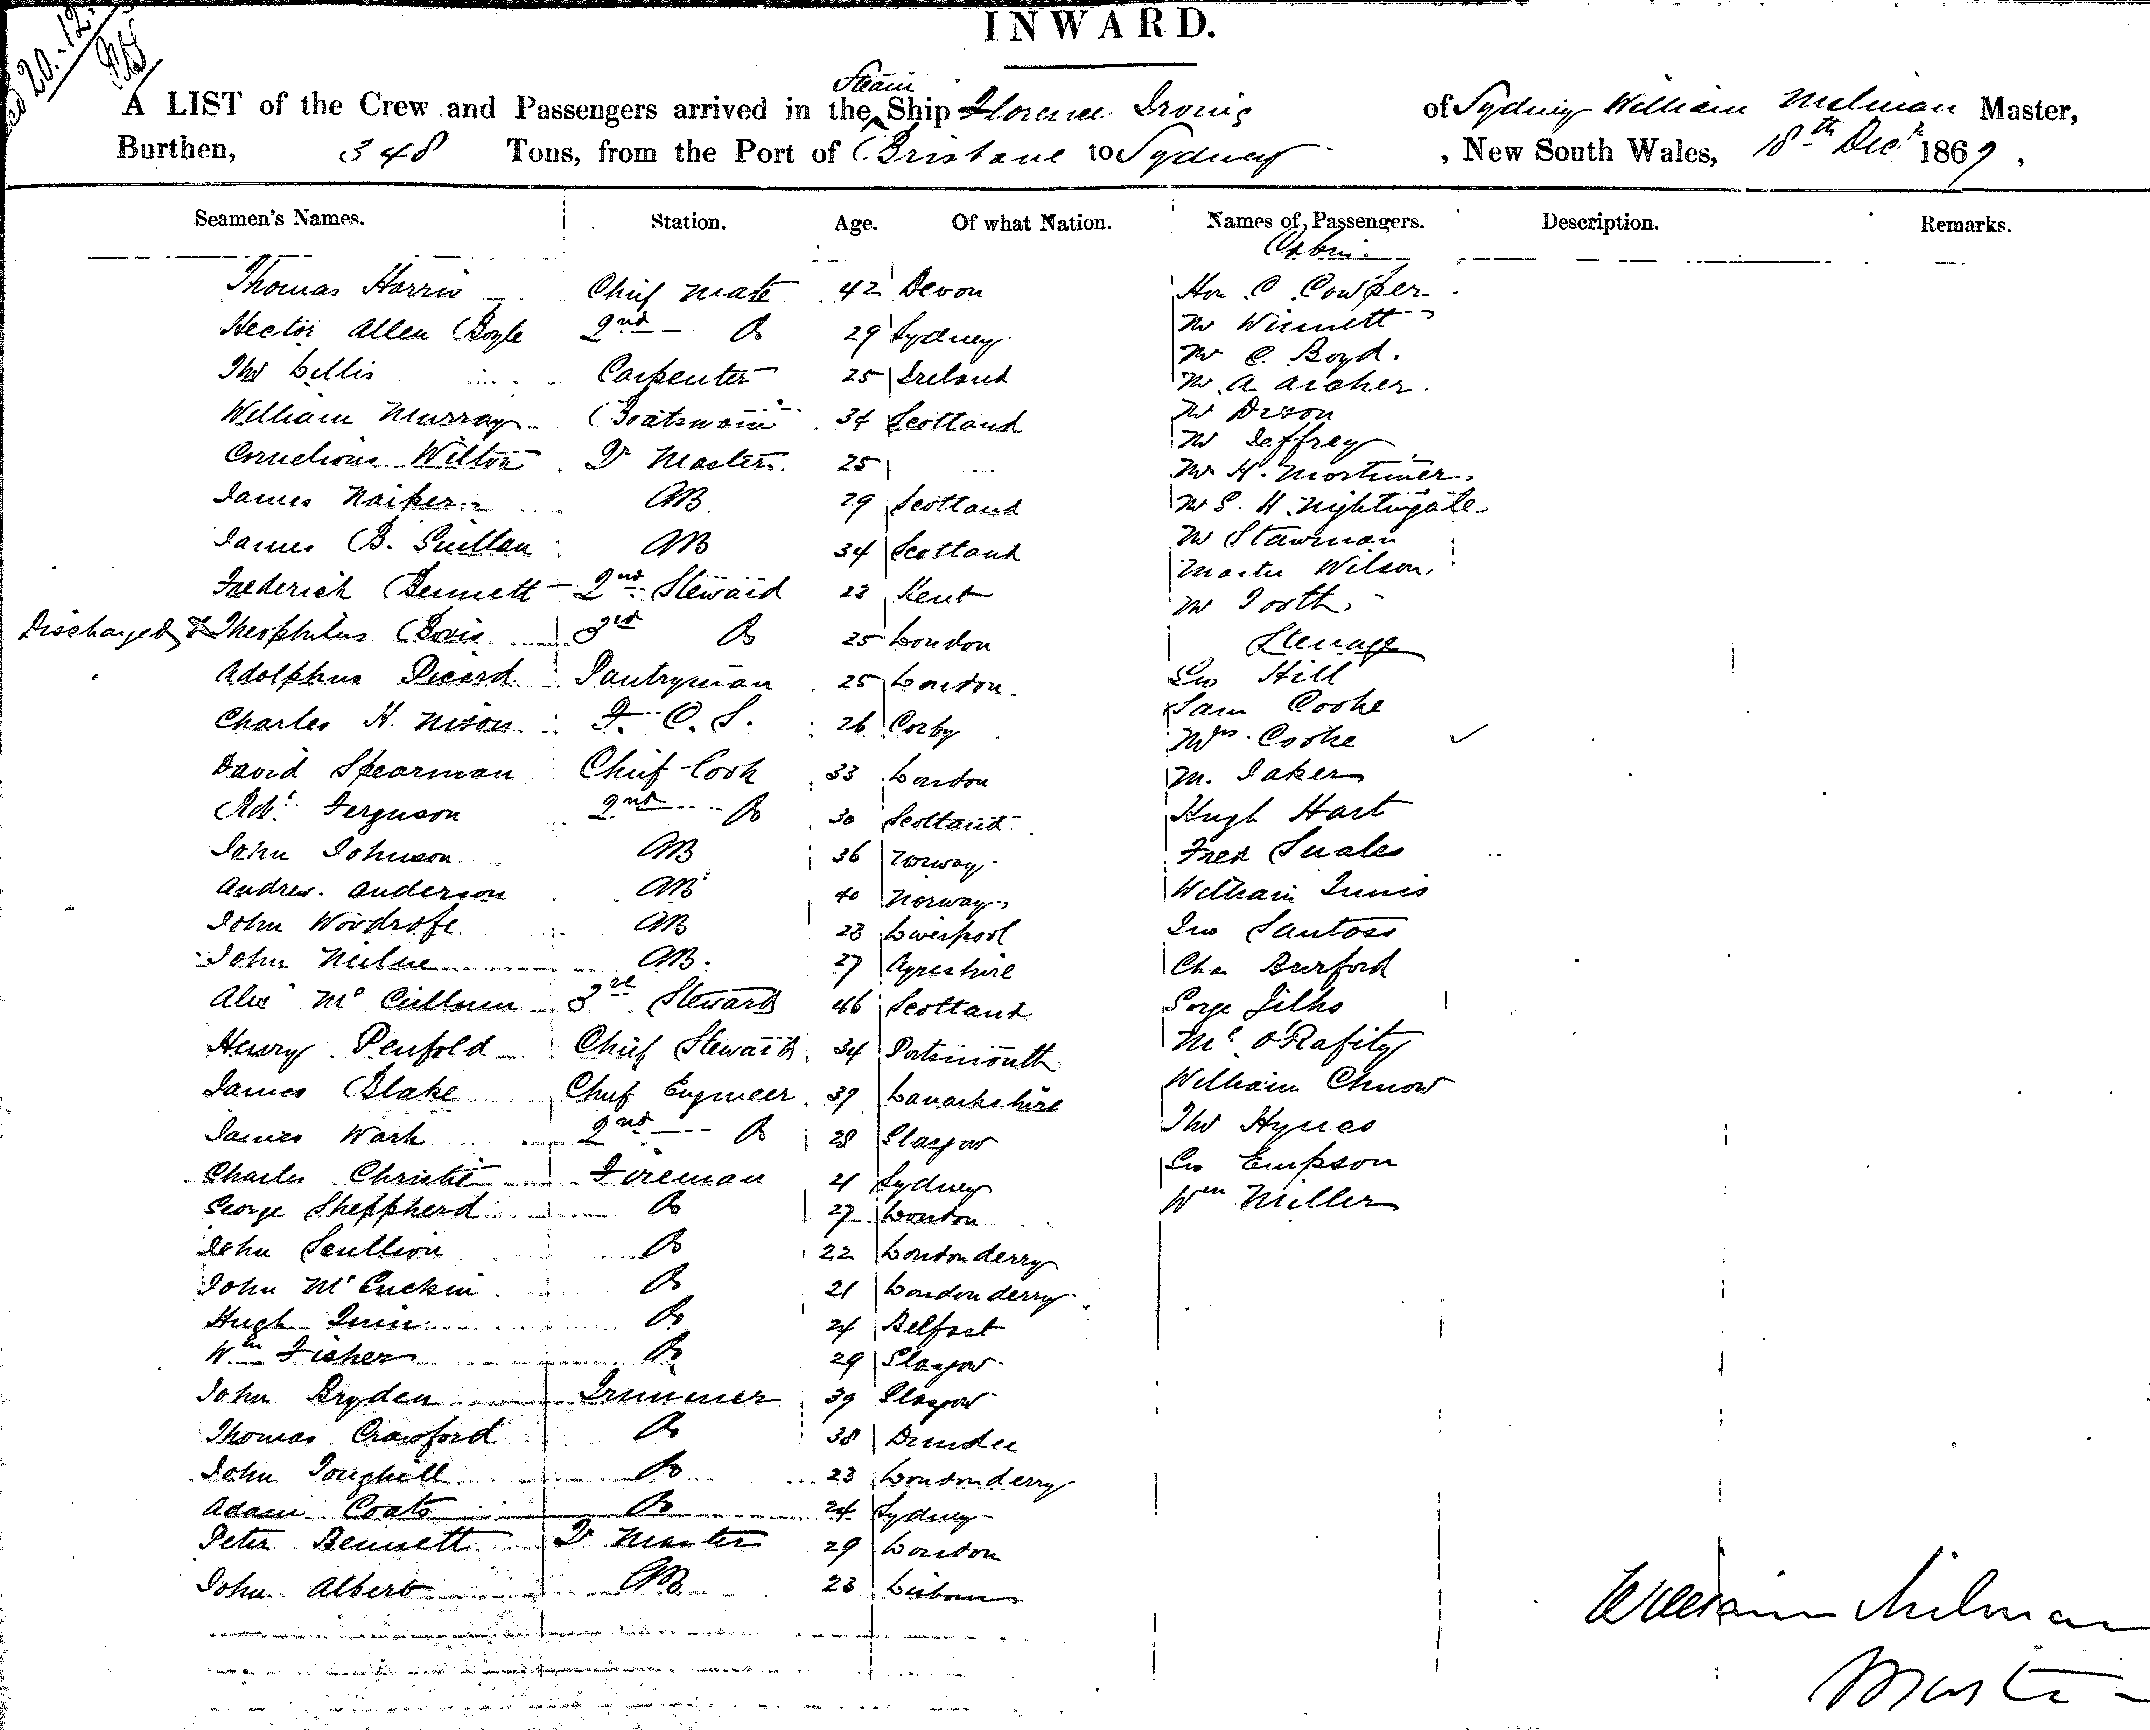 20.-12.
INWARD.
Steam
A LIST of the Crew and Passengers arrived in the Ship Florence Irving of Sydney William Milman Master,
Burthen, 348 Tons, from the Port of Brisbane to Sydney, New South Wales, 18th Decr 1869,
Seamen's Names. Station. Age. Of what Nation. Names of Passengers. Description. Remarks.
Cabin
Thomas Harris Chief Mate 42 Devon
Hector Allen Boyle 2nd Do 29 Sydney
Thos Lellis Carpenter 25 Ireland
William Murray Boatswain 34 Scotland
Cornelious Wilton Qr Master 25
James Naiper AB 29 Scotland
James B. AB 34 Scotland
Frederick Bennett 2nd Steward 23 Kent
Discharged Theophilus 3rd Do 25 London
Adolphus Picard Pantryman 25 London
Charles H. Nixon F. C. S. 26 Corby
David Spearman Chief Cook 33 London
Robt Ferguson 2nd Do 30 Scotland
John Johnson AB 36 Norway
Andrew Anderson AB 40 Norway
John Woodrofe AB 28 Liverpool
John Milne AB 27 Ayreshire
Alex McCullum 3rd Steward 46 Scotland
Henry Penfold Chief Steward 34 Portsmouth
James Blake Chief Engineer 39 Lanarkshire
James Wark 2nd Do 28 Glasgow
Charles Christie Fireman 21 Sydney
George Sheppherd Do 27 London
John Scullion Do 22 Londonderry
John McGuckin Do 21 Londonderry
Hugh Quin Do 24 Belfast
Wm Fisher Do 29 Glasgow
John Bryden Trimmer 39 Glasgow
Thomas Crawford Do 38 Dundee
John Toughill Do 23 Londonderry
Adam Coats Do 24 Sydney
Peter Bennett Qr Master 29 London
John Albert AB 23 Lisbon
Hon C Cowper
Mr Winnett
Mr C. Boyd.
Mr A Archer.
Mr Dixon
Mr Jaffrey
Mr H. Mortimer.
Mr S. H. Nightingale
Mr Stawman
Master Wilson
Mr Tooth
Steerage
Geo Hill
Sam Cooke
Mrs Cooke
M. Baker
Hugh Hart
Fred Swales
William Innis
Jno Santoss
Chas Burford
George Gilks
Mc O'Rafity
William Chnow
Thos Hynes
Geo Empson
Wm Miller
William Milman
Master